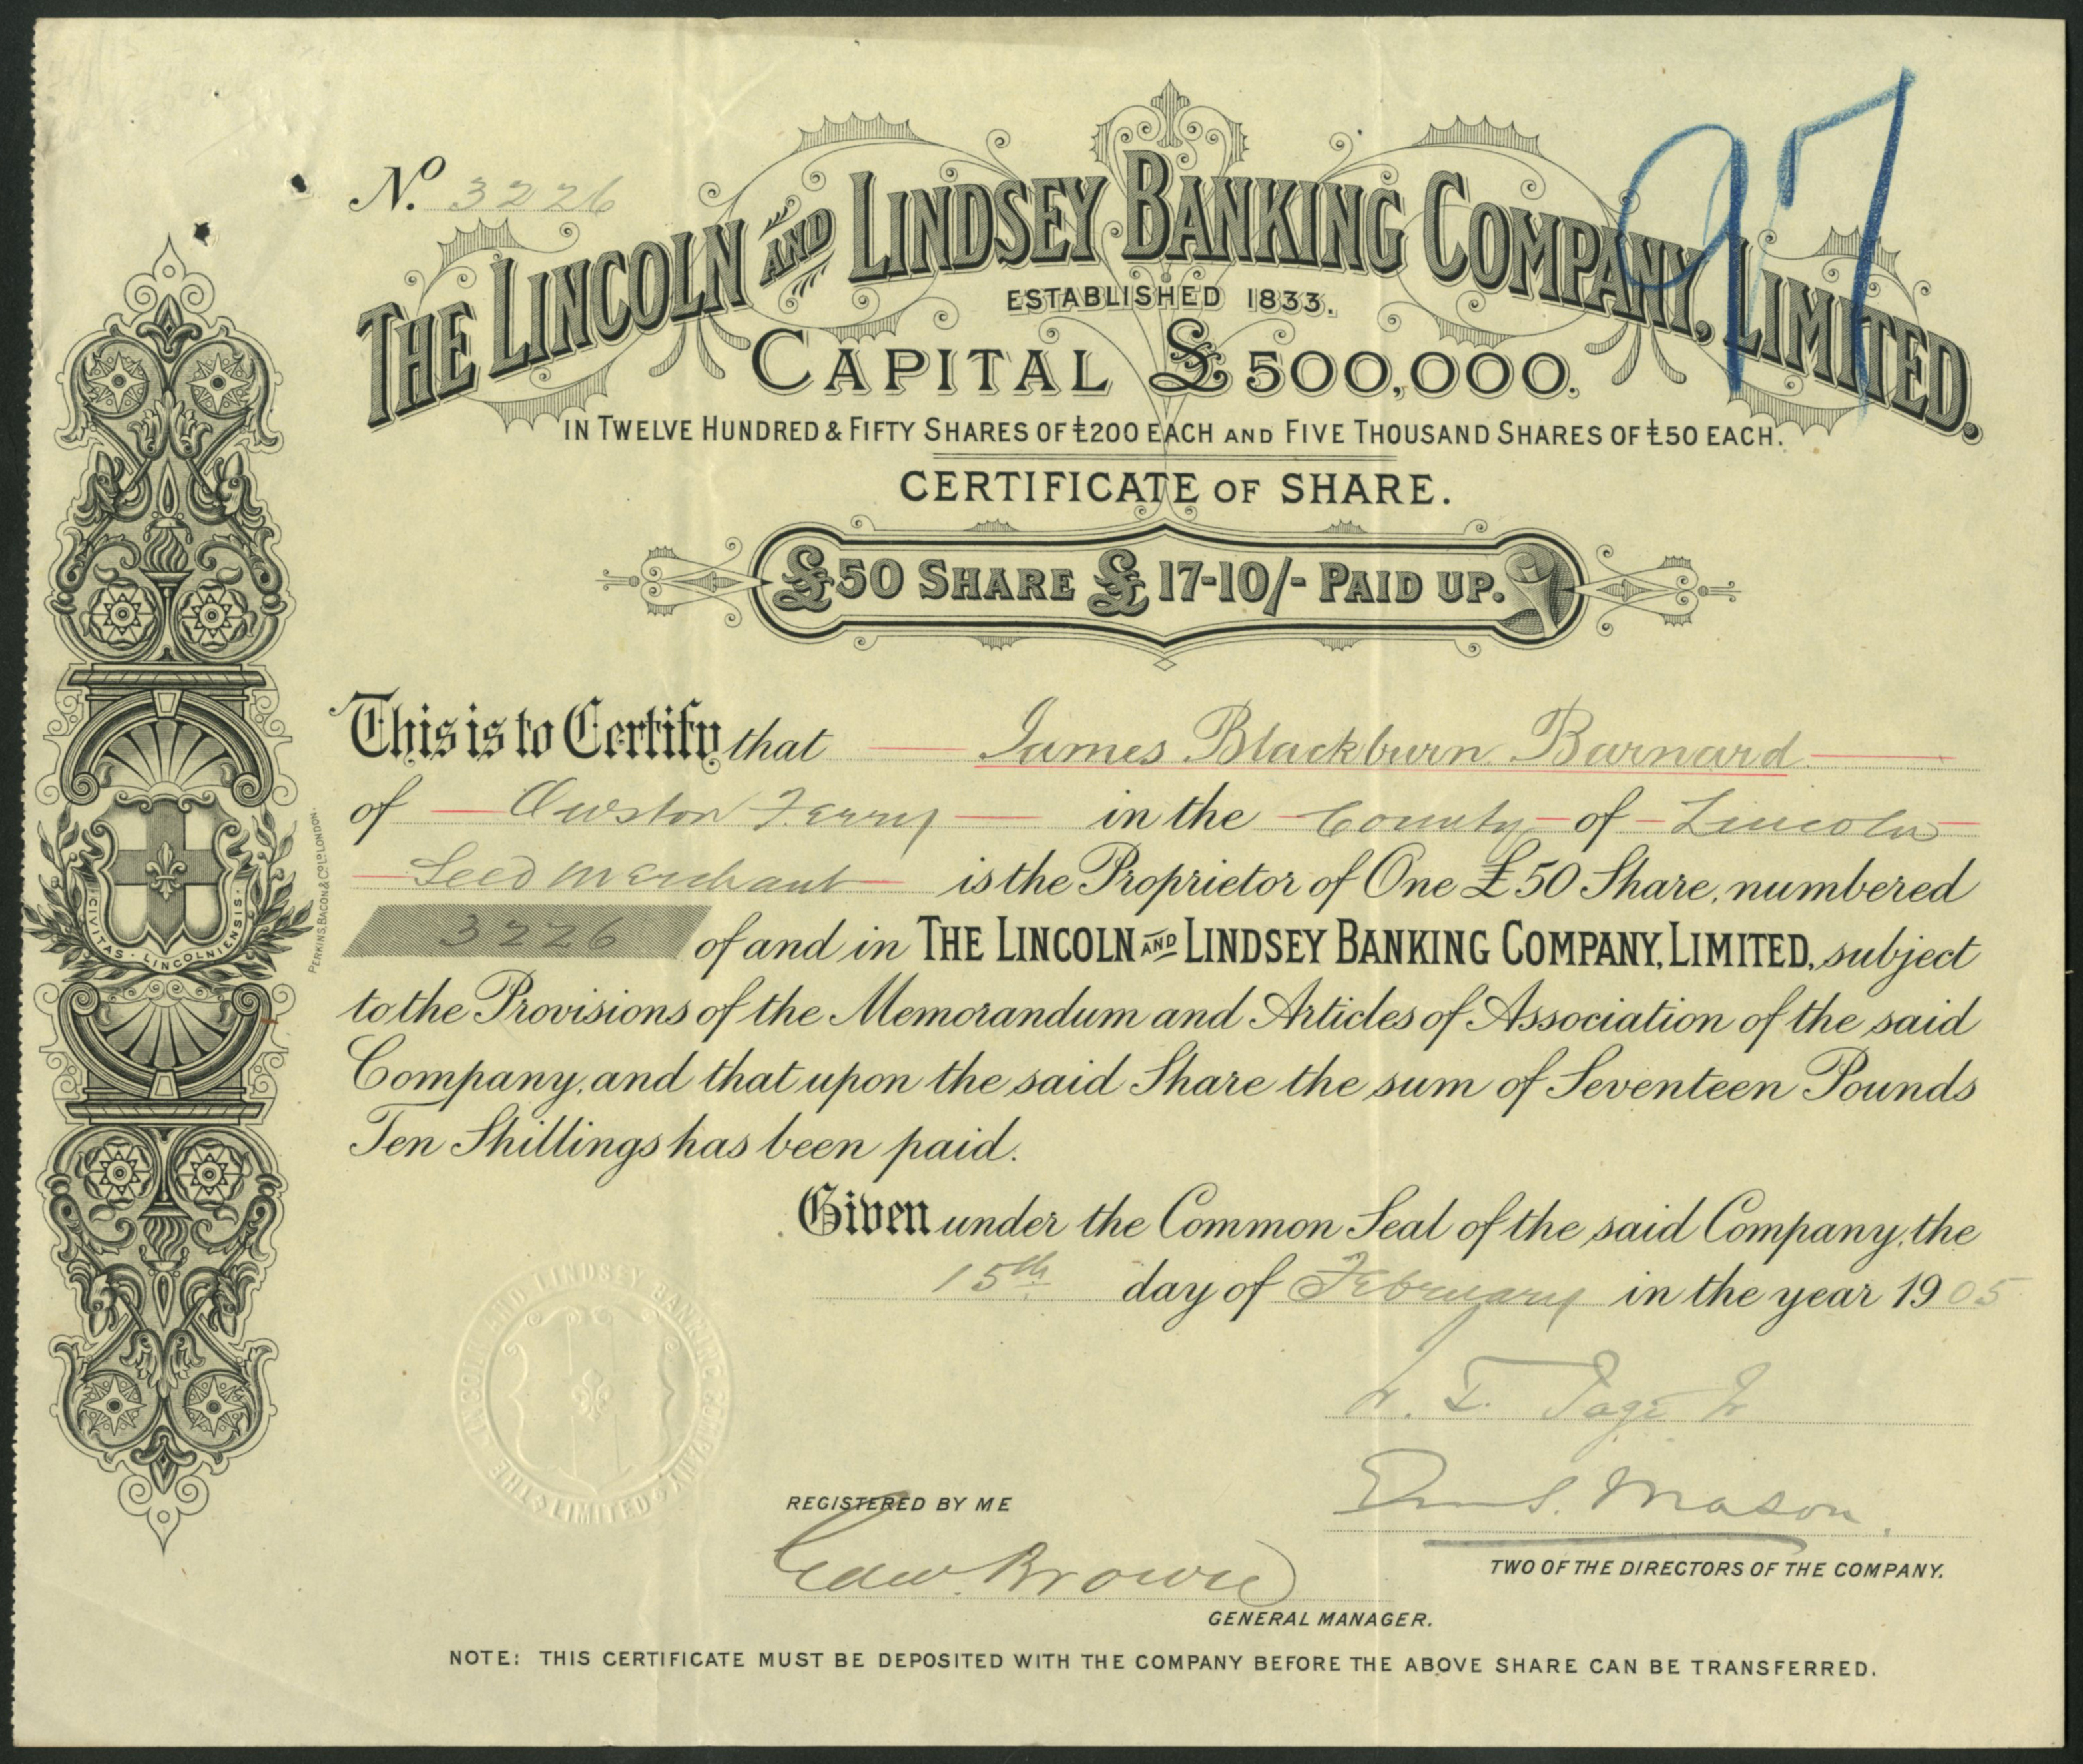 97
No. 3226
THE LINCOLN AND LINDSEY BANKING COMPANY, LIMITED.
ESTABLISHED 1833.
CAPITAL £500,000.
IN TWELVE HUNDRED & FIFTY SHARES OF £200 EACH AND FIVE THOUSAND SHARES OF £50 EACH.
CERTIFICATE OF SHARE.
£50 SHARE £17-10/- PAID UP.
This is to Certify that James Blackburn Barnard
of Owston Ferry in the County of Lincoln
Seed Merchant is the Proprietor of One £50 Share, numbered
3226 of and in THE LINCOLN AND LINDSEY BANKING COMPANY, LIMITED, subject
to the Provisions of the Memorandum and Articles of Association of the said
Company, and that upon the said Share the sum of Seventeen Pounds
Ten Shillings has been paid.
Given under the Common Seal of the said Company, the
15th day of February in the year 1905
CIVITAS · LINCOLNIENSIS
PERKINS, BACON & CO LD LONDON.
THE LINCOLN AND LINDSEY BANKING COMPANY LIMITED
T. Page Jr
S. Mason.
TWO OF THE DIRECTORS OF THE COMPANY.
REGISTERED BY ME
Edw. Browne
GENERAL MANAGER.
NOTE: THIS CERTIFICATE MUST BE DEPOSITED WITH THE COMPANY BEFORE THE ABOVE SHARE CAN BE TRANSFERRED.